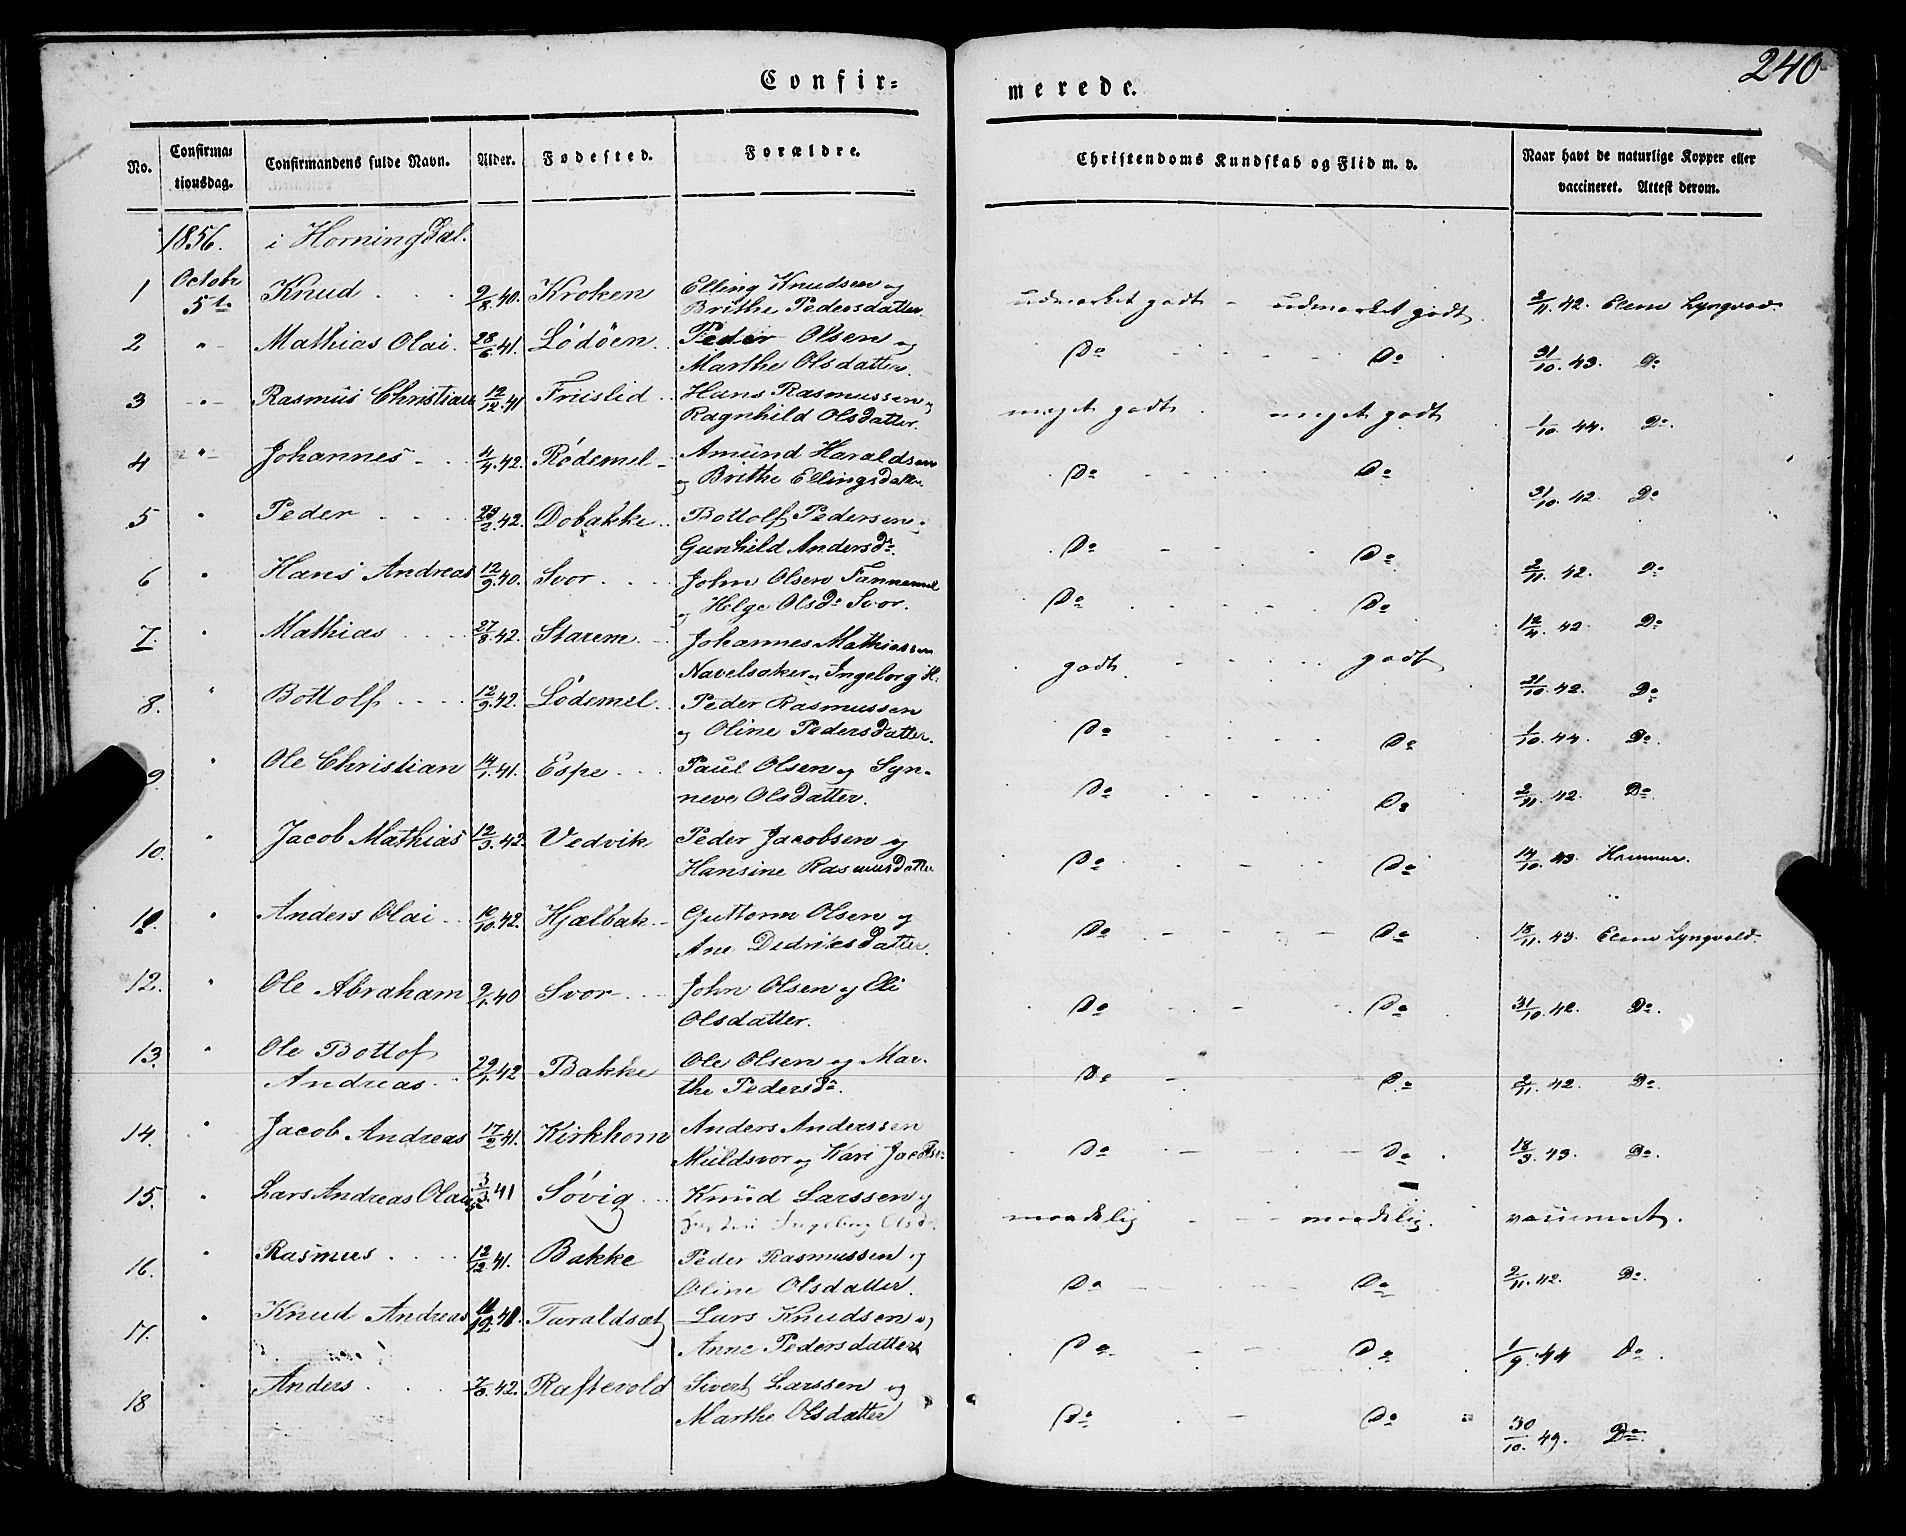 240
Confir=
merede.
No. Confirma= tionsdag. Confirmandens fulde Navn. Alder. Fødested. Forældre. Christendoms Kundskab og Flid m. v. Naar havt de naturlige Kopper eller vaccineret. Attest derom.
1856. i Horningdal.
1 Octobr 5te Knud 2/8.40. Kroken Elling Knudsen og udmærket godt - udmærket godt 2/11.42.
Brithe Pedersdatter.
2 " Mathias Olai. 28/6.41. Lødøen. Peder Olsen og Do Do 31/10.43. Do
Marthe Olsdatter.
3 " Rasmus Christian 12/12.41 Friislid Hans Rasmussen og meget godt meget godt 1/10.44. Do.
Ragnhild Olsdatter.
4 " Johannes 4/4.42. Rødemel Amund Haraldsen Do Do 31/10.42 Do
og Brithe Ellingsdatter
5 " Peder 23/2.42. Dobakke Bottolf Pedersen Do Do 2/11.42. Do
Gunhild Andersdr.
6 " Hans Andreas 12/9.40. Svor John Olsen Tannemel Do Do 12/4.42. Do
og Helge Olsdr Svor.
7. " Mathias 27/8.42. Starem Johannes Mathiassen godt. godt 31/10.42. Do
Navelsaker og Ingeborg H.
8. " Bottolf 12/9.42. Lødemel Peder Rasmussen Do Do 1/10.44. Do.
og Oline Pedersdatter.
9. " Ole Christian 14/1.41. Espe Paul Olsen og Syn- Do Do 2/11.42. Do
neve Olsdatter.
10. " Jacob Mathias 12/3.42. Vedvik Peder Jacobsen og Do Do 14/10.43. Hammer.
Hansine Rasmusdatter
11. " Anders Olai 16/10.42. Hjælbak Guttorm Olsen og Do Do 18/11.43.
Ane Dedriksdatter.
12. " Ole Abraham 2/1.40 Svor John Olsen og Elli Do Do 31/10.42. Do.
Olsdatter.
13. " Ole Bottof 29/1.42 Bakke Ole Olsen og Mar- Do Do 2/11.42. Do.
Andreas the Pedersdr.
14. " Jacob Andreas 17/2.41. Kirkhorn Anders Anderssen Do Do 18/9.43. Do.
Muldsvor og Kari
15. " Lars Andreas Olai 3/3.41 Søvig Knud Larssen og maadelig maadelig.
Ingeborg Olsdr.
16. " Rasmus 12/12.41. Bakke Peder Rasmussen og Do Do 2/11.42. Do.
Oline Olsdatter.
17. " Knud Andreas Taraldsæt Lars Knudsen og Do Do 1/9.44 Do.
Anne Pedersdatter
18 " Anders 7/3.42. Raftevold Sivert Larssen og Do Do 30/10.49. Do.
Marthe Olsdatter